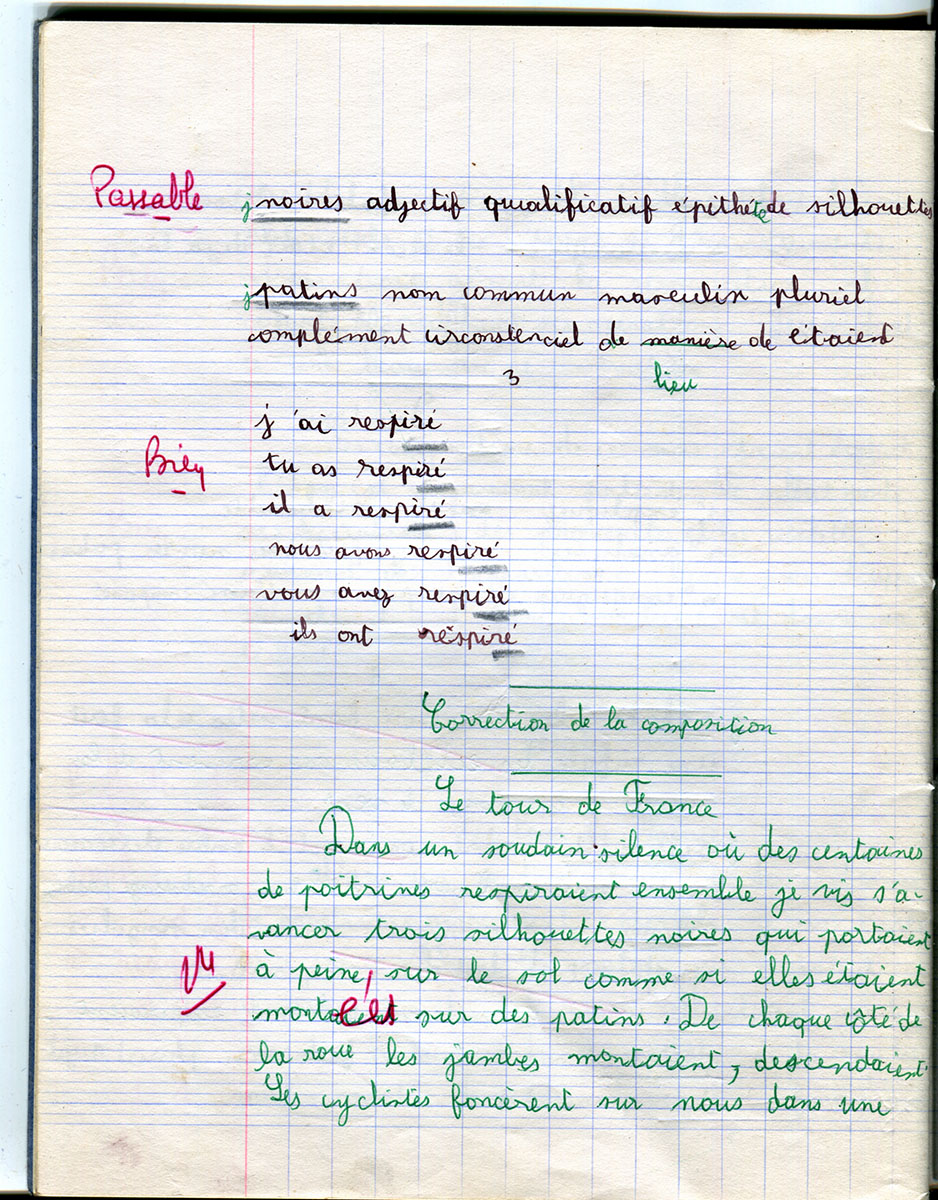 Passable j noires adjectif qualificatif épithéte de silhouettes
j patins nom commun masculin pluriel
complément circonstenciel de manière de étaient
3 lieu
j'ai respiré
Bien tu as respiré
il a respiré
nous avons respiré
vous avez respiré
ils ont respiré
Correction de la composition
Le tour de France
Dans un soudain silence où des centaines
de poitrines respiraient ensemble je vis s'a-
vancer trois silhouettes noires qui portaient
Vu à peine, sur le sol comme si elles étaient
sur des patins. De chaque côté de
la roue les jambes montaient, descendaient.
Les cyclistes foncèrent sur nous dans une